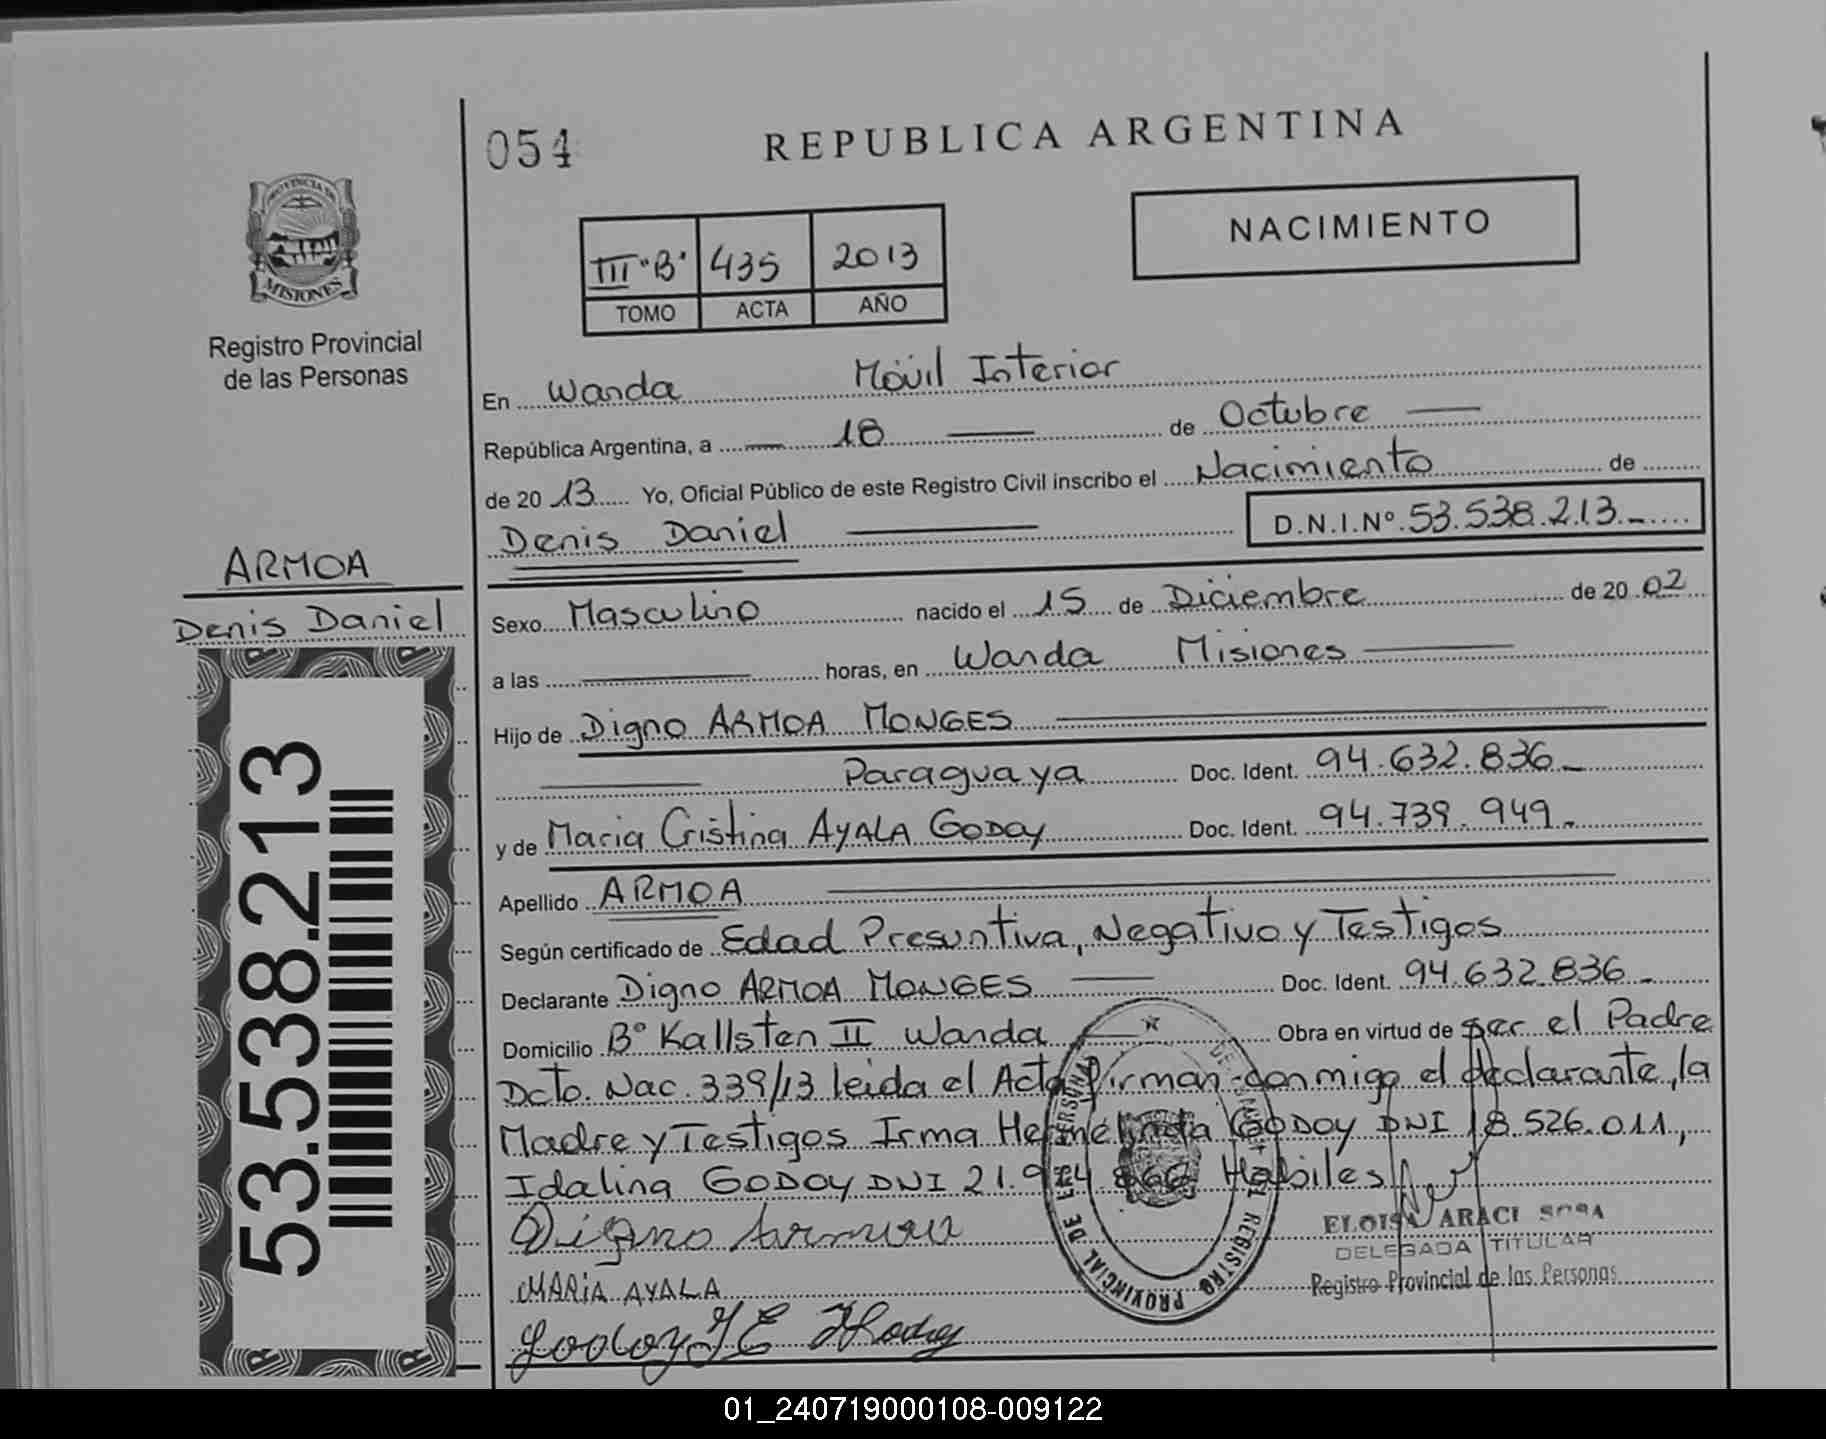 054
REPUBLICA ARGENTINA
PROVINCIA DE
MISIONES
Registro Provincial
de las Personas
NACIMIENTO
III "B" 435 2013
TOMO ACTA AÑO
En Wanda Móvil Interior
República Argentina, a 18 de Octubre
de 20 13 Yo, Oficial Público de este Registro Civil inscribo el Nacimiento de
Denis Daniel D.N.I.Nº 53.538.213.-
ARMOA
Denis Daniel
53.538.213
Sexo Masculino nacido el 15 de Diciembre de 20 02
a las horas, en Wanda Misiones
Hijo de Digno ARMOA MONGES
Paraguaya Doc. Ident. 94.632.836.-
y de Maria Cristina AYALA GODOY Doc. Ident. 94.739.949.-
Apellido ARMOA
Según certificado de Edad Presuntiva, Negativo y Testigos
Declarante Digno ARMOA MONGES Doc. Ident. 94.632.836.-
Domicilio Bº Kallsten II Wanda Obra en virtud de ser el Padre
Dcto. Nac. 339/13 leida el Acta firman conmigo el declarante, la
Madre y Testigos Irma Hermelinda GODOY DNI 18.526.011,
Idalina GODOY DNI 21. Habiles
Digno Armoa
MARIA AYALA
Godoy I E
REGISTRO PROVINCIAL DE
ELOISA ARACI SOSA
DELEGADA TITULAR
Registro Provincial de las Personas
01_240719000108-009122